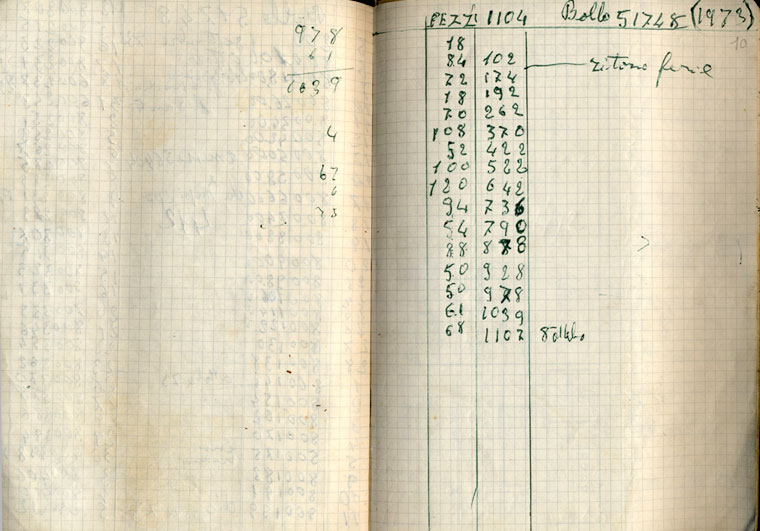 978
61
1039
4
67
6
73
PEZZI 1104 Bollo 51748 (1973)
10
18
84 102 ritorno ferie
72 174
18 192
70 262
108 370
52 422
100 522
120 642
94 736
54 790
88 878
50 928
50 978
61 1039
68 1107